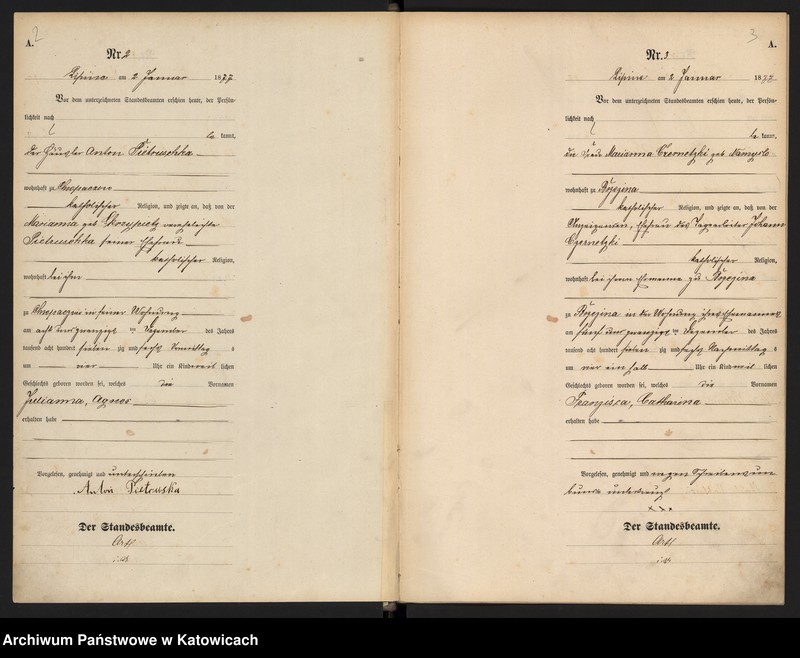 2
A.
Nr. 2
Lipine am 2 Januar 1877
Vor dem unterzeichneten Standesbeamten erschien heute, der Persön-
lichkeit nach
kannt,
der Häusler Anton Pietruschka
wohnhaft zu
katholischer Religion, und zeigte an, daß von der
Marianna geb Skorzypietz verehelichte
Pietruschka seiner Ehefrau
katholischer Religion,
wohnhaft bei ihm
zu in seiner Wohnung
am acht und zwanzigst en Dezember des Jahres
tausend acht hundert sieben zig und sechs Vormittag s
um vier Uhr ein Kind weib lichen
Geschlechts geboren worden sei, welches die Vornamen
Julianna, Agnes
erhalten habe
Vorgelesen, genehmigt und unterschrieben
Anton Pietruska
Der Standesbeamte.
3
A.
Nr. 3
Lipine am 2 Januar 1877
Vor dem unterzeichneten Standesbeamten erschien heute, der Persön-
lichkeit nach
be kannt,
die Frau Marianna Czernetzki geb Namyslo
wohnhaft zu
katholischer Religion, und zeigte an, daß von der
Anzeigenden, Ehefrau des Tagearbeiter Johann
Czernetzki
katholischer Religion,
wohnhaft bei ihrem Ehemanne zu
zu in der Wohnung ihres Ehemannes
am fünf und zwanzigst en Dezember des Jahres
tausend acht hundert sieben zig und sechs Nachmittag s
um vier ein halb Uhr ein Kind weib lichen
Geschlechts geboren worden sei, welches die Vornamen
Franzisca, Catharina
erhalten habe
Vorgelesen, genehmigt und wegen Schreibensun
kunde unterkreuzt
xxx
Der Standesbeamte.
Archiwum Państwowe w Katowicach